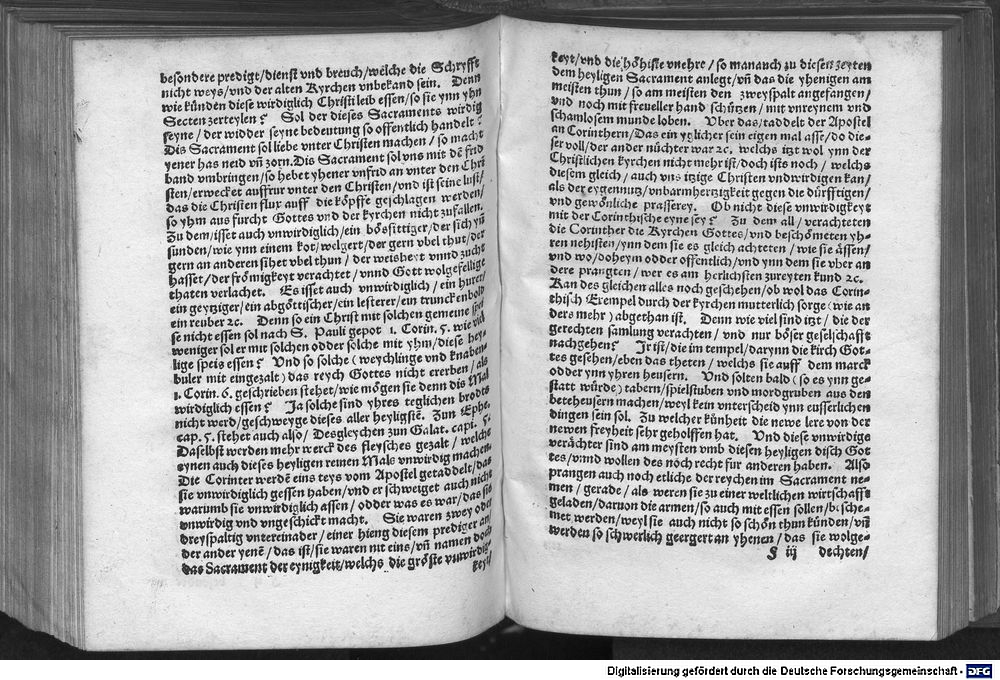 besondere predigt/dienst vnd breuch/welche die Schryfft
nicht weys/vnd der alten Kyrchen vnbekand sein. Denn
wie künden diese wirdiglich Christi leib essen/so sie ynn yhn
Secten zerteylen? Sol der dieses Sacraments wirdig
seyne/der widder seyne bedeutung so offentlich handelt?
Dis Sacrament sol liebe vnter Christen machen/so macht
yener has neid vñ zorn. Dis Sacrament sol vns mit dē frid
band vmbringen/so hebet yhener vnfrid an vnter den Chri
sten/erwecket auffrur vnter den Christen/vnd ist seine lust/
das die Christen flux auff die köpffe geschlagen werden/
so yhm aus furcht Gottes vnd der kyrchen nicht zufallen.
Zu dem/isset auch vnwirdiglich/ein bössittiger/der sich yñ
sunden/wie ynn einem kot/welgert/der gern vbel thut/der
gern an anderen sihet vbel thun/der weisheyt vnnd zucht
hasset/der frömigkeyt verachtet/vnnd Gott wolgefellige
thaten verlachet. Es isset auch vnwirdiglich/ein hurer/
ein geytziger/ein abgöttischer/ein lesterer/ein trunckenbold
ein reuber ꝛc. Denn so ein Christ mit solchen gemeine spei
se nicht essen sol nach S. Pauli gepot 1. Corin. 5. wie viel
weniger sol er mit solchen odder solche mit yhm/diese hey-
lige speis essen? Vnd so solche (weychlinge vnd knaben-
buler mit eingezalt) das reych Gottes nicht ererben/als
1. Corin. 6. geschrieben stehet/wie mögen sie denn dis Mal
wirdiglich essen? Ja solche sind yhres teglichen brodts
nicht werd/geschweyge dieses aller heyligstē. Zun Ephe.
cap. 5. stehet auch also/Desgleychen zun Galat. capi. 5.
Daselbst werden mehr werck des fleysches gezalt/welche
eynen auch dieses heyligen reinen Mals vnwirdig machen.
Die Corinter werdē eins teys vom Apostel getaddelt/das
sie vnwirdiglich gessen haben/vnd er schweiget auch nicht
warumb sie vnwirdiglich assen/odder was es war/das sie
vnwirdig vnd vngeschickt macht. Sie waren zwey oder
dreyspaltig vntereinader/einer hieng diesem prediger an/
der ander yenē/das ist/sie waren nit eins/vñ namen doch
das Sacrament der eynigkeit/welchs die gröste vnwirdig-
keyt/
keyt/vnd die höhiste vnehre/so man auch zu diesen zeyten
dem heyligen Sacrament anlegt/vñ das die yhenigen am
meisten thun/so am meisten den zweyspalt angefangen/
vnd noch mit freueller hand schützen/mit vnreynem vnd
schamlosem munde loben. Vber das/taddelt der Apostel
an Corinthern/Das ein yglicher sein eigen mal asse/do die-
ser voll/der ander nüchter war ꝛc. welchs itzt wol ynn der
Christlichen kyrchen nicht mehr ist/doch ists noch/welchs
diesem gleich/auch vns itzige Christen vndwirdigen kan/
als der eygennutz/vnbarmhertzigkeit gegen die dürfftigen/
vnd gewönliche prasserey. Ob nicht diese vnwirdigkeyt
mit der Corinthische eyne sey? Zu dem all/verachteten
die Corinther die Kyrchen Gottes/vnd beschömeten yh-
ren nehisten/ynn dem sie es gleich achteten/wie sie ässen/
vnd wo/doheym odder offentlich/vnd ynn dem sie vber an
dere prangten/wer es am herlichsten zureyten kund ꝛc.
Kan des gleichen alles noch geschehen/ob wol das Corin-
thisch Exempel durch der kyrchen mutterlich sorge (wie an
ders mehr) abgethan ist. Denn wie viel sind itzt/die der
gerechten samlung verachten/vnd nur böser geselschafft
nachgehen? Jr ist/die im tempel/darynn die kirch Got-
tes gesehen/eben das theten/welchs sie auff dem marck
odder ynn yhren heusern. Vnd solten bald (so es ynn ge-
statt würde) tabern/spielstuben vnd mordgruben aus den
beteheusern machen/weyl kein vnterscheid ynn eusserlichen
dingen sein sol. Zu welcher künheit die newe lere von der
newen freyheit sehr geholffen hat. Vnd diese vnwirdige
verächter sind am meysten vmb diesen heyligen disch Got
tes/vnnd wollen des noch recht fur anderen haben. Also
prangen auch noch etliche der reychen im Sacrament ne-
men/gerade/als weren sie zu einer weltlichen wirtschafft
geladen/daruon die armen/so auch mit essen sollen/besche-
met werden/weyl sie auch nicht so schön thun künden/vñ
werden so schwerlich geergert an yhenen/das sie wolge-
iij dechten/
Digitalisierung gefördert durch die Deutsche Forschungsgemeinschaft - DFG